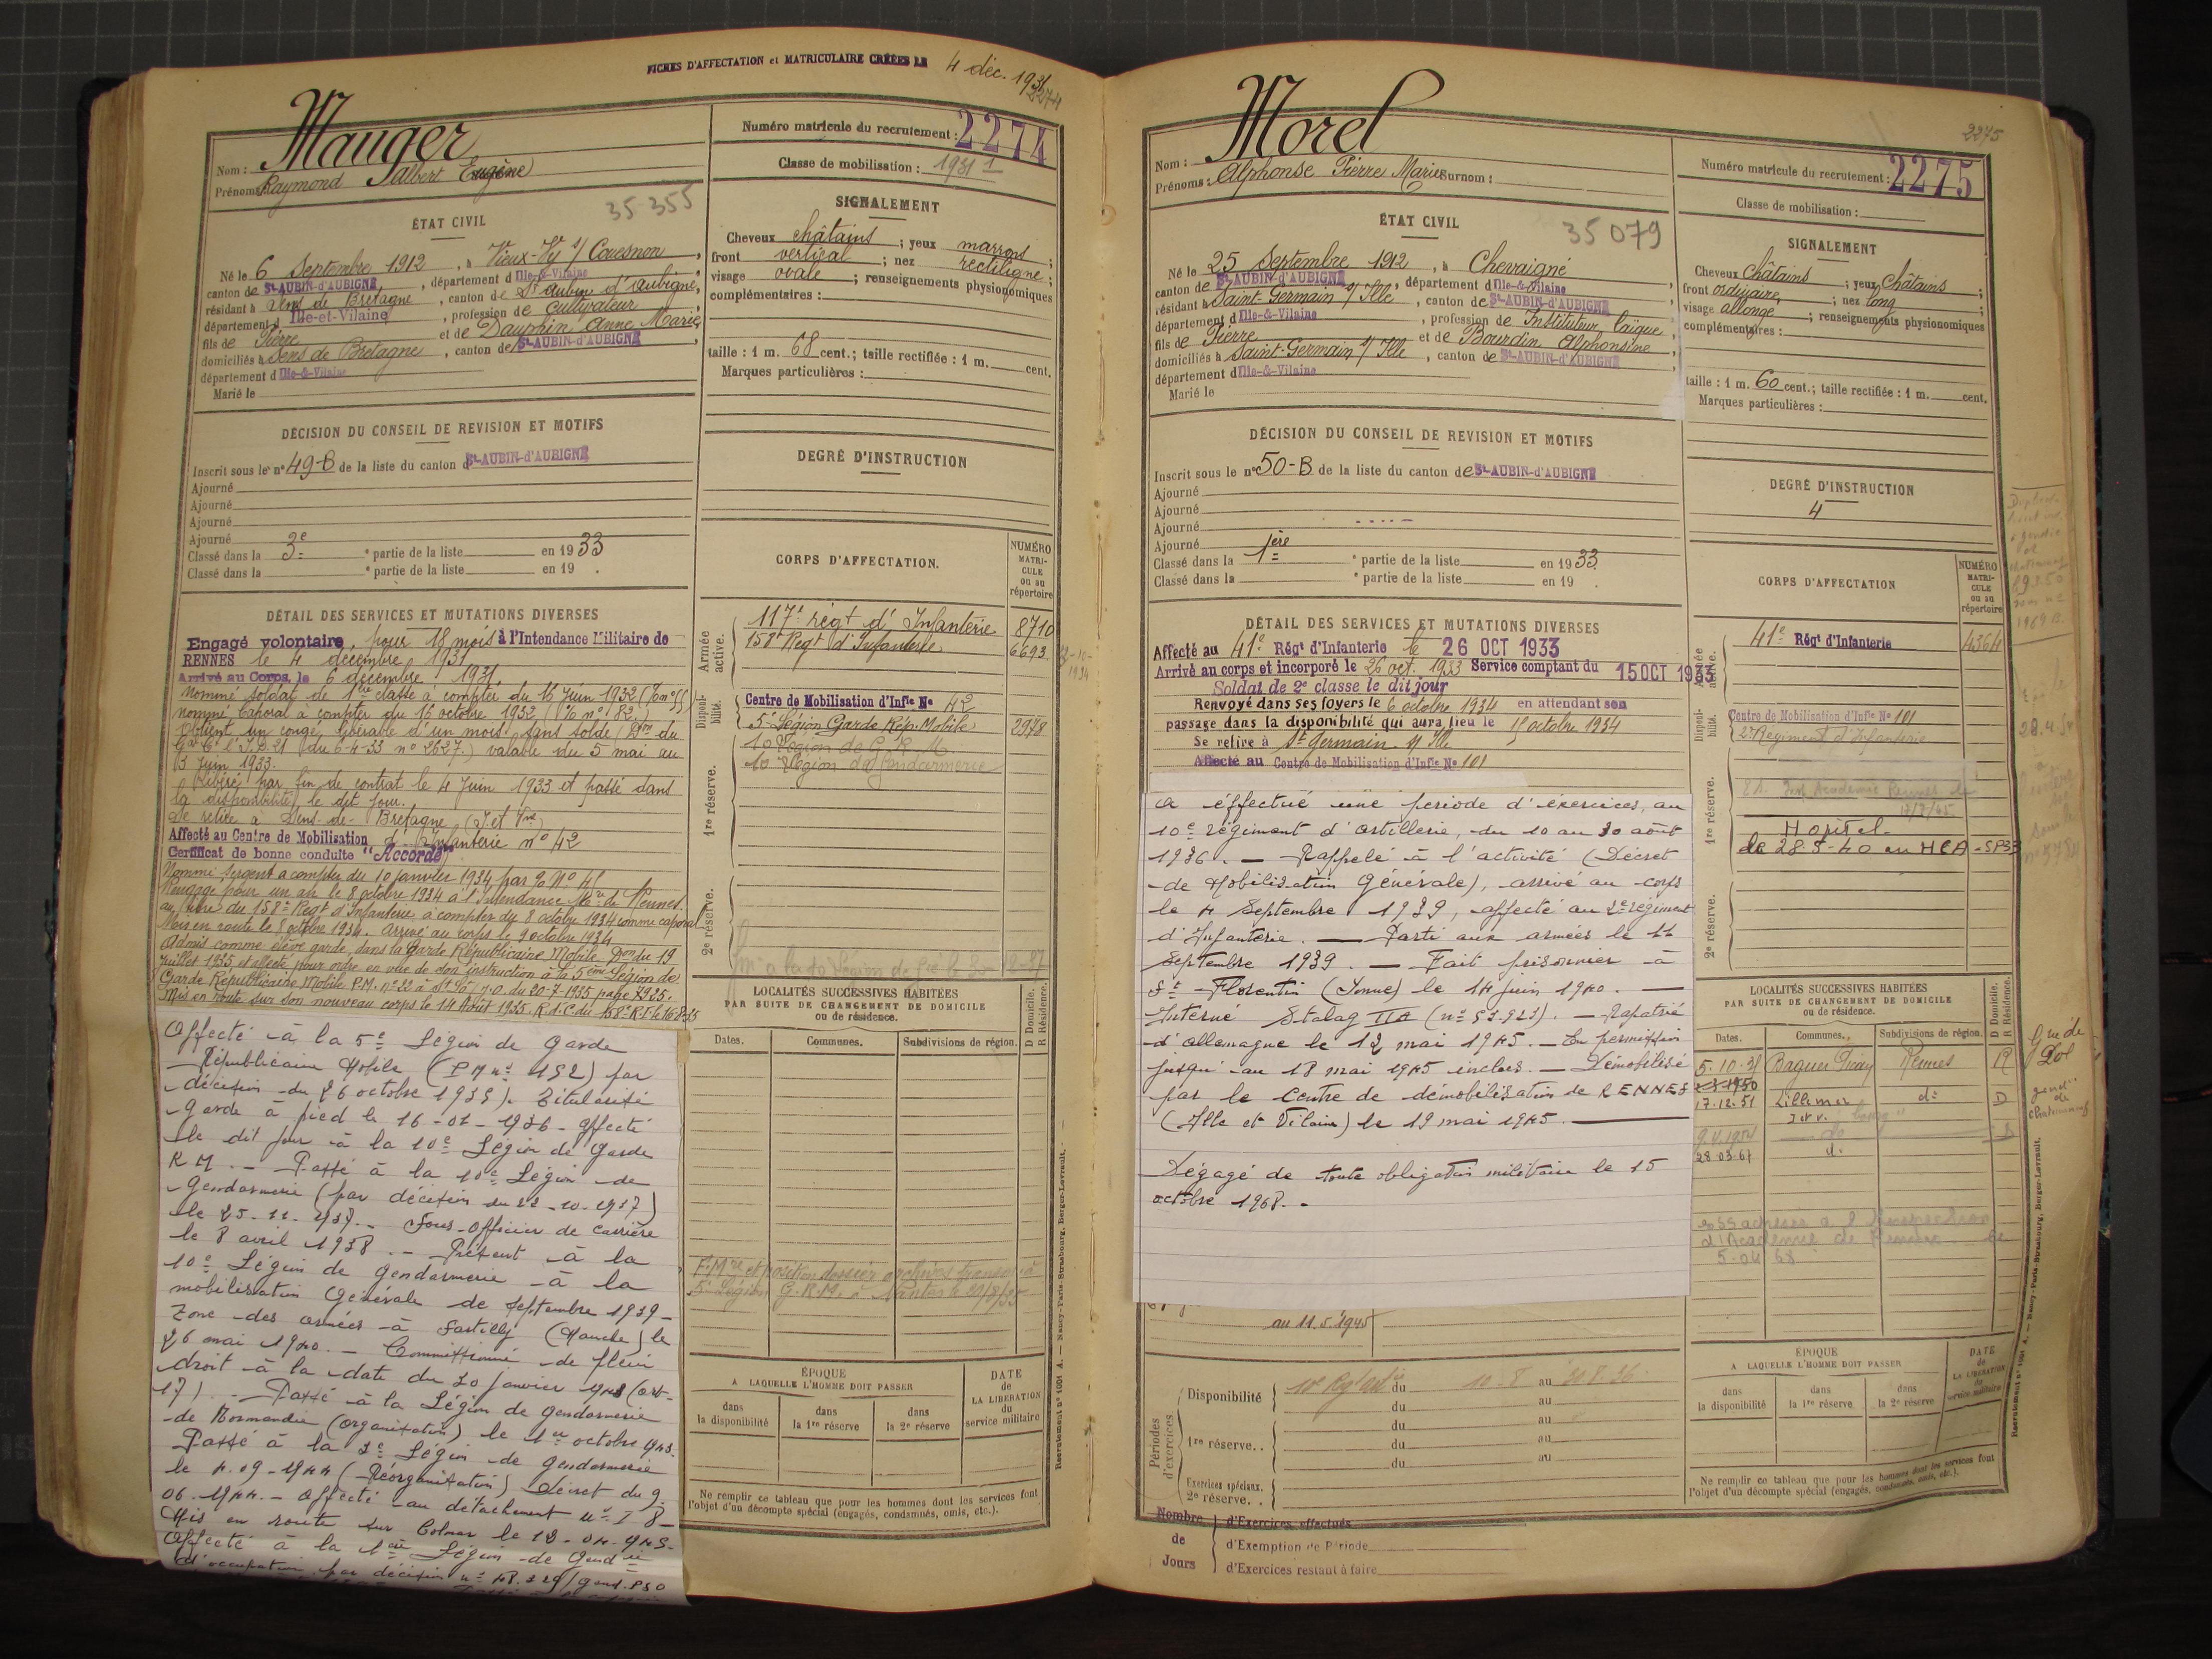 FICHES D'AFFECTATION et MATRICULAIRE CRÉÉES LE 4 déc. 1931
2274
Nom : Mauger
Prénoms : Raymond Albert Eugène
Numéro matricule du recrutement : 2274
Classe de mobilisation : 1931 1
ÉTAT CIVIL
35 355
Né le 6 Septembre 1912, à Vieux-Vy s/ Couesnon,
canton de St-AUBIN-d'AUBIGNE, département d'Ille-&-Vilaine
résidant à Sens de Bretagne, canton de St Aubin d'Aubigné,
département d'Ille-et-Vilaine, profession de Cultivateur
fils de Pierre et de Dauphin Anne Marie,
domiciliés à Sens de Bretagne, canton de St-AUBIN-d'AUBIGNE,
département d'Ille-&-Vilaine
Marié le
SIGNALEMENT
Cheveux châtains ; yeux marrons ;
front vertical ; nez rectiligne ;
visage ovale ; renseignements physionomiques
complémentaires :
taille : 1 m. 68 cent. ; taille rectifiée : 1 m. cent.
Marques particulières :
DÉCISION DU CONSEIL DE REVISION ET MOTIFS
Inscrit sous le n° 49-B de la liste du canton d St-AUBIN-d'AUBIGNE
Ajourné
Ajourné
Ajourné
Ajourné
Classé dans la 3e ° partie de la liste en 1933
Classé dans la ° partie de la liste en 19 .
DEGRÉ D'INSTRUCTION
DÉTAIL DES SERVICES ET MUTATIONS DIVERSES
Engagé volontaire, pour 18 mois à l'Intendance Militaire de
RENNES le 4 décembre 1931
Arrivé au Corps, le 6 décembre 1931.
Nommé soldat de 1ère classe à compter du 16 Juin 1932
Nommé Caporal à compter du 16 octobre 1932 (% n° 82.)
Obtient un congé libérable d'un mois sans solde (Don du
Gal Ct l'I.D. 21 du 6-4-33 n° 2627.) valable du 5 mai au
3 Juin 1933.
Libéré par fin de contrat le 4 Juin 1933 et passé dans
la disponibilité le dit jour.
Se retire à Sens-de-Bretagne (I et Vne)
Affecté au Centre de Mobilisation d'Infanterie n° 42
Certificat de bonne conduite "Accordé"
Nommé Sergent à compter du 10 janvier 1934 par % N° 4
Rengagé pour un an le 8 octobre 1934 à l'Intendance Mre de Rennes
au titre du 158e Regt d'Infanterie à compter du 8 octobre 1934 comme caporal
Mis en route le 8 octobre 1934. Arrivé au corps le 9 octobre 1934
Admis comme élève garde, dans la Garde Républicaine Mobile Don du 19
Juillet 1935 et affecté pour ordre en vue de son instruction à la 5ème Légion de
Garde Républicaine Mobile P.M. n° 22 à St Lô J.O. du 20-7-1935 page 7925.
Mis en route sur son nouveau corps le 14 Août 1935. R.d.C. du 158e R.I. le 16-8-35
Affecté à la 5e Légion de Garde
Républicaine Mobile (P M n° 152) par
décision du 26 octobre 1935). Titularisé
Garde à pied le 16-01-1936 - affecté
le dit jour à la 10e Légion de Garde
R M. - Passé à la 10e Légion de
Gendarmerie (par décision du 22-10-1937)
le 25-11-1937. - Sous-Officier de carrière
le 8 avril 1938. - Présent à la
10e Légion de gendarmerie à la
mobilisation Générale de septembre 1939 -
Zone des armées à Sartilly (Manche) le
26 mai 1940. - Commissionné de plein
droit à la date du 30 janvier 1943 (art.
17). - Passé à la Légion de gendarmerie
de Normandie (organisation) le 1er octobre 1943.
Passé à la 3e Légion de gendarmerie
le 4.09-1944 (Réorganisation) Décret du 9.
06.1944. - Affecté au détachement n° I 8 -
Mis en route sur Colmar le 18-04-1945-
Affecté à la 1ère Légion de Gendie
d'occupation par décision n° 48.329/gend.P50
CORPS D'AFFECTATION.
NUMÉRO MATRI-CULE ou au répertoire
Armée active.
117e regt d'Infanterie 8710
158e Regt d'Infanterie 6693
Disponi-bilité.
Centre de Mobilisation d'Infie N° 42
5e Légion Garde Rép. Mobile 2978
10e Légion de G. R. M.
10e Légion de Gendarmerie
1re réserve.
2e réserve.
LOCALITÉS SUCCESSIVES HABITÉES
PAR SUITE DE CHANGEMENT DE DOMICILE
ou de résidence.
D Domicile. R Résidence.
Dates. Communes. Subdivisions de région.
5e Légion G.R.M. à Nantes le 20/8/35
ÉPOQUE
A LAQUELLE L'HOMME DOIT PASSER
DATE de LA LIBÉRATION du service militaire
dans la disponibilité
dans la 1re réserve
dans la 2e réserve
Ne remplir ce tableau que pour les hommes dont les services font
l'objet d'un décompte spécial (engagés, condamnés, omis, etc.).
Recrutement n° 1001 A. — Nancy-Paris-Strasbourg, Berger-Levrault.
2275
Nom : Morel
Prénoms : Alphonse Pierre Marie Surnom :
Numéro matricule du recrutement : 2275
Classe de mobilisation :
ÉTAT CIVIL
35 079
Né le 25 Septembre 1912, à Chevaigné
canton de St-AUBIN-d'AUBIGNE, département d'Ille-&-Vilaine
résidant à Saint-Germain s/ Ille, canton de St-AUBIN-d'AUBIGNE
département d'Ille-&-Vilaine, profession de Instituteur laïque,
fils de Pierre et de Bourdin Alphonsine
domiciliés à Saint-Germain s/ Ille, canton de St-AUBIN-d'AUBIGNE
département d'Ille-&-Vilaine
Marié le
SIGNALEMENT
Cheveux châtains ; yeux châtains ;
front ordinaire ; nez long ;
visage allongé ; renseignements physionomiques
complémentaires :
taille : 1 m. 60 cent. ; taille rectifiée : 1 m. cent.
Marques particulières :
DÉCISION DU CONSEIL DE REVISION ET MOTIFS
Inscrit sous le n° 50-B de la liste du canton de St-AUBIN-d'AUBIGNE
Ajourné
Ajourné
Ajourné
Ajourné
Classé dans la 1ère ° partie de la liste en 1933
Classé dans la ° partie de la liste en 19 .
DEGRÉ D'INSTRUCTION
4
DÉTAIL DES SERVICES ET MUTATIONS DIVERSES
Affecté au 41e Régt d'Infanterie le 26 OCT 1933
Arrivé au corps et incorporé le 26 oct. 1933 Service comptant du 15 OCT 1933
Soldat de 2e classe le dit jour
Renvoyé dans ses foyers le 6 octobre 1934 en attendant son
passage dans la disponibilité qui aura lieu le 15 octobre 1934
Se retire à St Germain s/ Ille
Affecté au Centre de Mobilisation d'Infie N° 101
A éffectué une periode d'éxercices, au
10e régiment d'artillerie, du 10 au 30 août
1936. — Rappelé à l'activité (Décret
de Mobilisation Générale), arrivé au corps
le 4 Septembre 1939, affecté au 2e régiment
d'Infanterie. — Parti aux armées le 14
Septembre 1939. — Fait prisonnier à
St Florentin (Yonne) le 14 juin 1940. —
Interné Stalag II A (n° 53.923). — Rapatrié
d'Allemagne le 12 mai 1945. — En permission
jusqu'au 18 mai 1945 inclus. — Démobilisé
par le Centre de démobilisation de RENNES
(Ille et Vilaine) le 19 mai 1945. —
Dégagé de toute obligation militaire le 15
octobre 1968. -
au 11.5.1945
Périodes d'exercices
Disponibilité 10e Rgt art du 10-8 au 30.8.36.
du au
1re réserve..
du au
du au
du au
Exercices spéciaux.
2e réserve. .
Nombre de Jours
d'Exercices effectués
d'Exemption de Période
d'Exercices restant à faire
CORPS D'AFFECTATION
NUMÉRO MATRI-CULE ou au répertoire
Armée active.
41e Régt d'Infanterie 4364
Disponi-bilité.
Centre de Mobilisation d'Infie N° 101
2e Régiment d'Infanterie
1re réserve.
Hopital
le 28 5-40 au HCA - SP33
2e réserve.
LOCALITÉS SUCCESSIVES HABITÉES
PAR SUITE DE CHANGEMENT DE DOMICILE
ou de résidence.
D Domicile. R Résidence.
Dates. Communes. Subdivisions de région.
5.10.35 Baguer Pican Rennes R
17.12.51 Lillemer do D
28-03-67 do
d'Académie de Rennes le
5-04 68
ÉPOQUE
A LAQUELLE L'HOMME DOIT PASSER
DATE de LA LIBÉRATION du service militaire
dans la disponibilité
dans la 1re réserve
dans la 2e réserve
Ne remplir ce tableau que pour les hommes dont les services font
l'objet d'un décompte spécial (engagés, condamnés, omis, etc.).
Recrutement n° 1001 A. — Nancy-Paris-Strasbourg, Berger-Levrault.